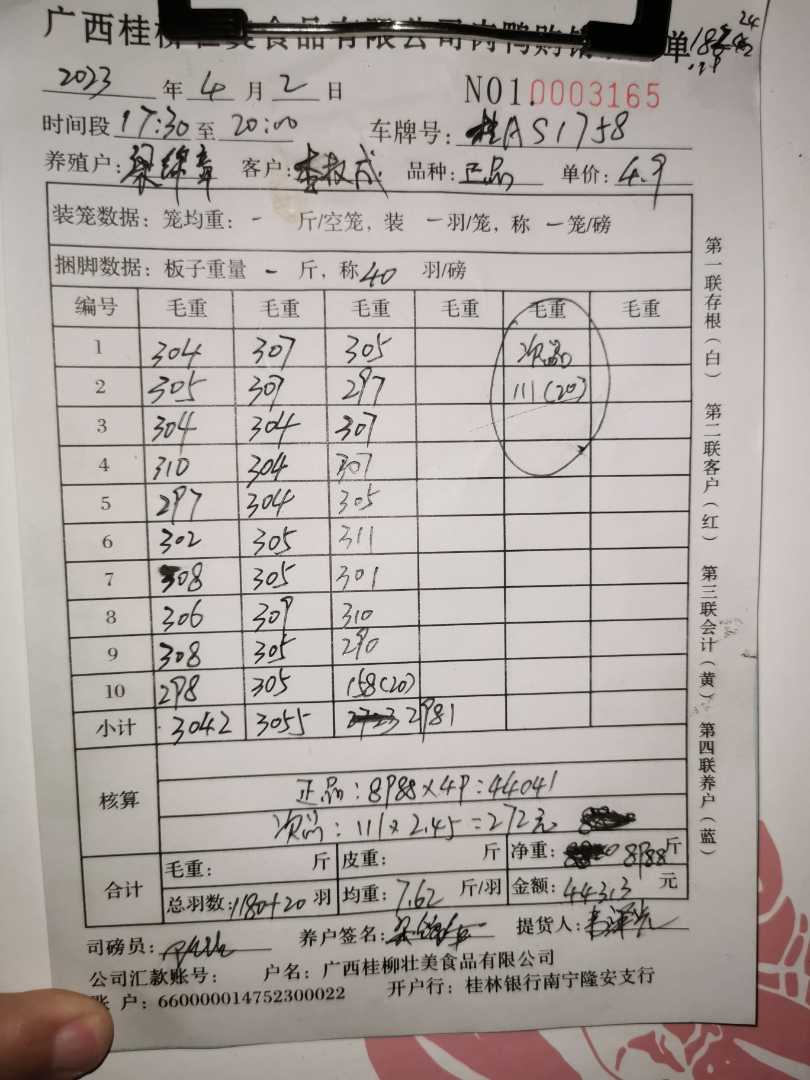 广西桂柳壮美食品有限公司肉鸭购销 单
2023 年 4 月 2 日 NO1.0003165
时间段 17:30 至 20:00 车牌号: 桂AS1758
养殖户: 客户: 品种: 正品 单价: 4.9
装笼数据: 笼均重: - 斤/空笼, 装 一羽/笼, 称 一笼/磅
捆脚数据: 板子重量 - 斤, 称40 羽/磅
编号 毛重 毛重 毛重 毛重 毛重 毛重
1 304 307 305 次品
2 305 307 297 111(20)
3 304 304 307
4 310 304 307
5 297 304 305
6 302 305 311
7 308 305 301
8 306 309 310
9 308 305 290
10 298 305 158(20)
小计 3042 3055 2981
核算
正品: 8988×49=44041
次品: 111×2.45=272元
合计
毛重: 斤 皮重: 斤 净重: 8988斤
总羽数: 1180+20 羽 均重: 7.62 斤/羽 金额: 44313 元
司磅员: 养户签名: 提货人:
公司汇款账号: 户名: 广西桂柳壮美食品有限公司
账 户: 660000014752300022 开户行: 桂林银行南宁隆安支行
第一联存根(白) 第二联客户(红) 第三联会计(黄) 第四联养户(蓝)